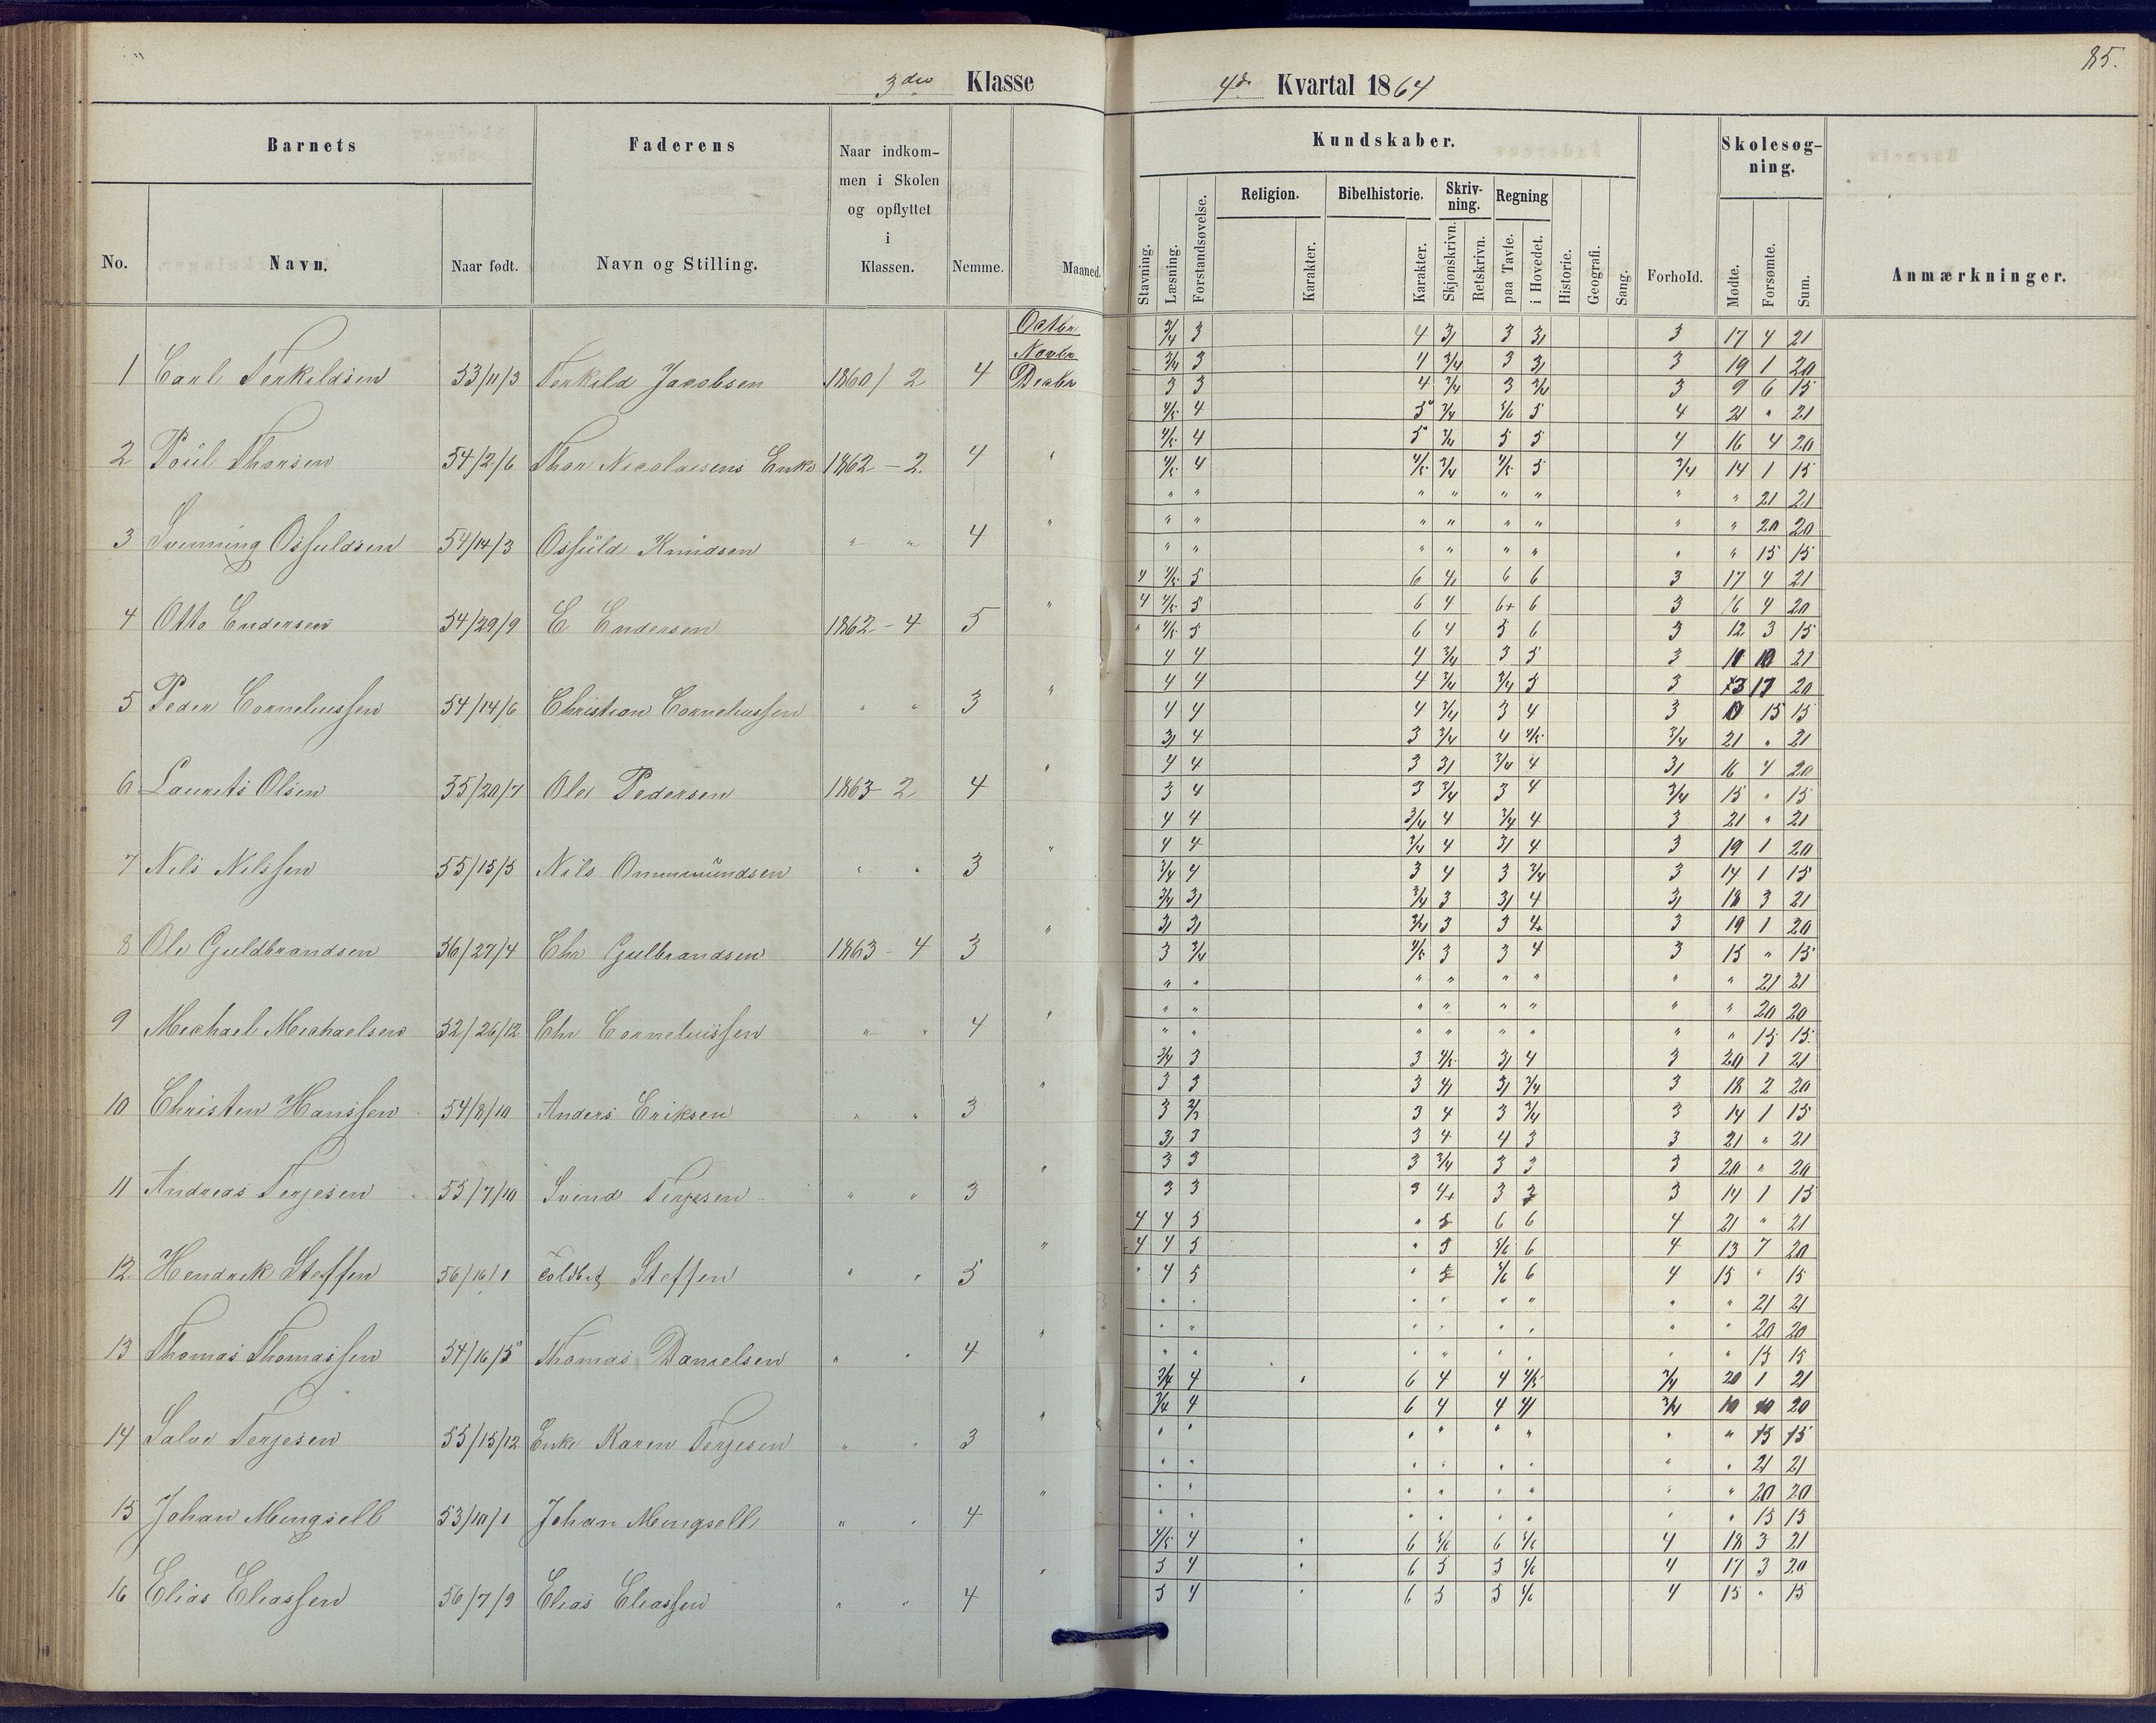 85.
3die Klasse
4de Kvartal 1864
Barnets
Faderens
Naar indkommen i Skolen og opflyttet i Klassen.
Nemme.
Maaned.
Kundskaber.
Forhold.
Skolesøgning.
Anmærkninger.
No.
Navn.
Naar født.
Navn og Stilling.
Stavning.
Læsning.
Forstandsøvelse.
Religion.
Karakter.
Bibelhistorie.
Karakter.
Skrivning.
Skjønskrivn.
Retskrivn.
Regning
paa Tavle.
i Hovedet.
Historie.
Geografi.
Sang.
Mødte.
Forsømte.
Sum.
Octbr 3/4 3 4 3 3 3 3 17 4 21
Novbr 3/4 3 4 3/4 3 3 3 19 1 20
1 Carl Terkildsen 53/11/3 Terkild Jacobsen 1860/2 4 Decbr 3 3 4 3/4 3 3/4 3 9 6 15
4/5 4 5 3/4 5/6 5 4 21 " 21
4/5 4 5 3/4 5 5 4 16 4 20
2 Poul Thorsen 54/2/6 Thor Nicolaisens Enke 1862-2 4 " 4/5 4 4/5 3/4 4/5 5 3/4 14 1 15
" " " " " " " " 21 21
" " " " " " " " 20 20
3 Svenning Osfuldsen 54/14/3 Osfuld Knudsen " " 4 " " " " " " " " " 15 15
4 4/5 5 6 4 6 6 3 17 4 21
4 4/5 5 6 4 6+ 6 3 16 4 20
4 Otto Endersen 54/29/9 E Endersen 1862-4 5 " " 4/5 5 6 4 5 6 3 12 3 15
4 4 4 3/4 3 5 3 11 10 21
4 4 4 3/4 3/4 5 3 13 17 20
5 Peder Corneliussen 54/14/6 Christian Corneliussen " " 3 " 4 4 4 3/4 3 4 3 0 15 15
3 4 3 3/4 4 4/5 3/4 21 " 21
4 4 3 3 3/4 4 3 16 4 20
6 Laurits Olsen 55/20/7 Ole Pedersen 1863-2 4 " 3 4 3 3/4 3 4 3/4 15 " 15
4 4 3/4 4 3/4 4 3 21 " 21
4 4 3/4 4 3 4 3 19 1 20
7 Nils Nilssen 55/15/5 Nils Ommundsen " " 3 " 3/4 4 3 4 3 3/4 3 14 1 15
3/4 3 3/4 3 3 4 3 18 3 21
3 3 3/4 3 3 4+ 3 19 1 20
8 Ole Guldbrandsen 56/27/4 Chr Gulbrandsen 1863-4 3 " 3 3/4 4/5 3 3 4 3 15 " 15
" " " " " " " " 21 21
" " " " " " " " 20 20
9 Michael Michaelsen 52/26/12 Chr Corneliussen " " 4 " " " " " " " " " 15 15
3/4 3 3 4/5 3 4 3 20 1 21
3 3 3 4 3 3/4 3 18 2 20
10 Christen Hanssen 54/8/10 Anders Eriksen " " 3 " 3 2/3 3 4 3 3/4 3 14 1 15
3 3 3 4 4 3 3 21 " 21
3 3 3 3/4 3 3 3 20 " 20
11 Andreas Terjesen 55/7/10 Svend Terjesen " " 3 " 3 3 3 4+ 3 3 3 14 1 15
4 4 5 " 5 6 6 4 21 " 21
4 4 5 " 5 5/6 6 4 13 7 20
12 Hendrik Steffen 56/16/1 Steffen " " 5 " " 4 5 " 5 5/6 6 4 15 " 15
" " " " " " " " 21 21
" " " " " " " " 20 20
13 Thomas Thomassen 54/16/5 Thomas Danielsen " " 4 " " " " " " " " " 15 15
3/4 4 " 6 4 4 4/5 3/4 20 1 21
3/4 4 6 4 4 4 3/4 10 10 20
14 Salve Terjesen 55/15/12 Enke Karen Terjesen " " 3 " " " " " " " " " 15 15
" " " " " " " " 21 21
" " " " " " " " 20 20
15 Johan Mengsell 53/10/1 Johan Mengsell " " 4 " " " " " " " " " 15 15
4/5 4 " 6 5/6 6 5/6 4 18 3 21
5 4 " 6 5 5 5/6 4 17 3 20
16 Elias Eliassen 56/7/9 Elias Eliassen " " 4 " 5 4 " 6 5 5 5/6 4 15 " 15